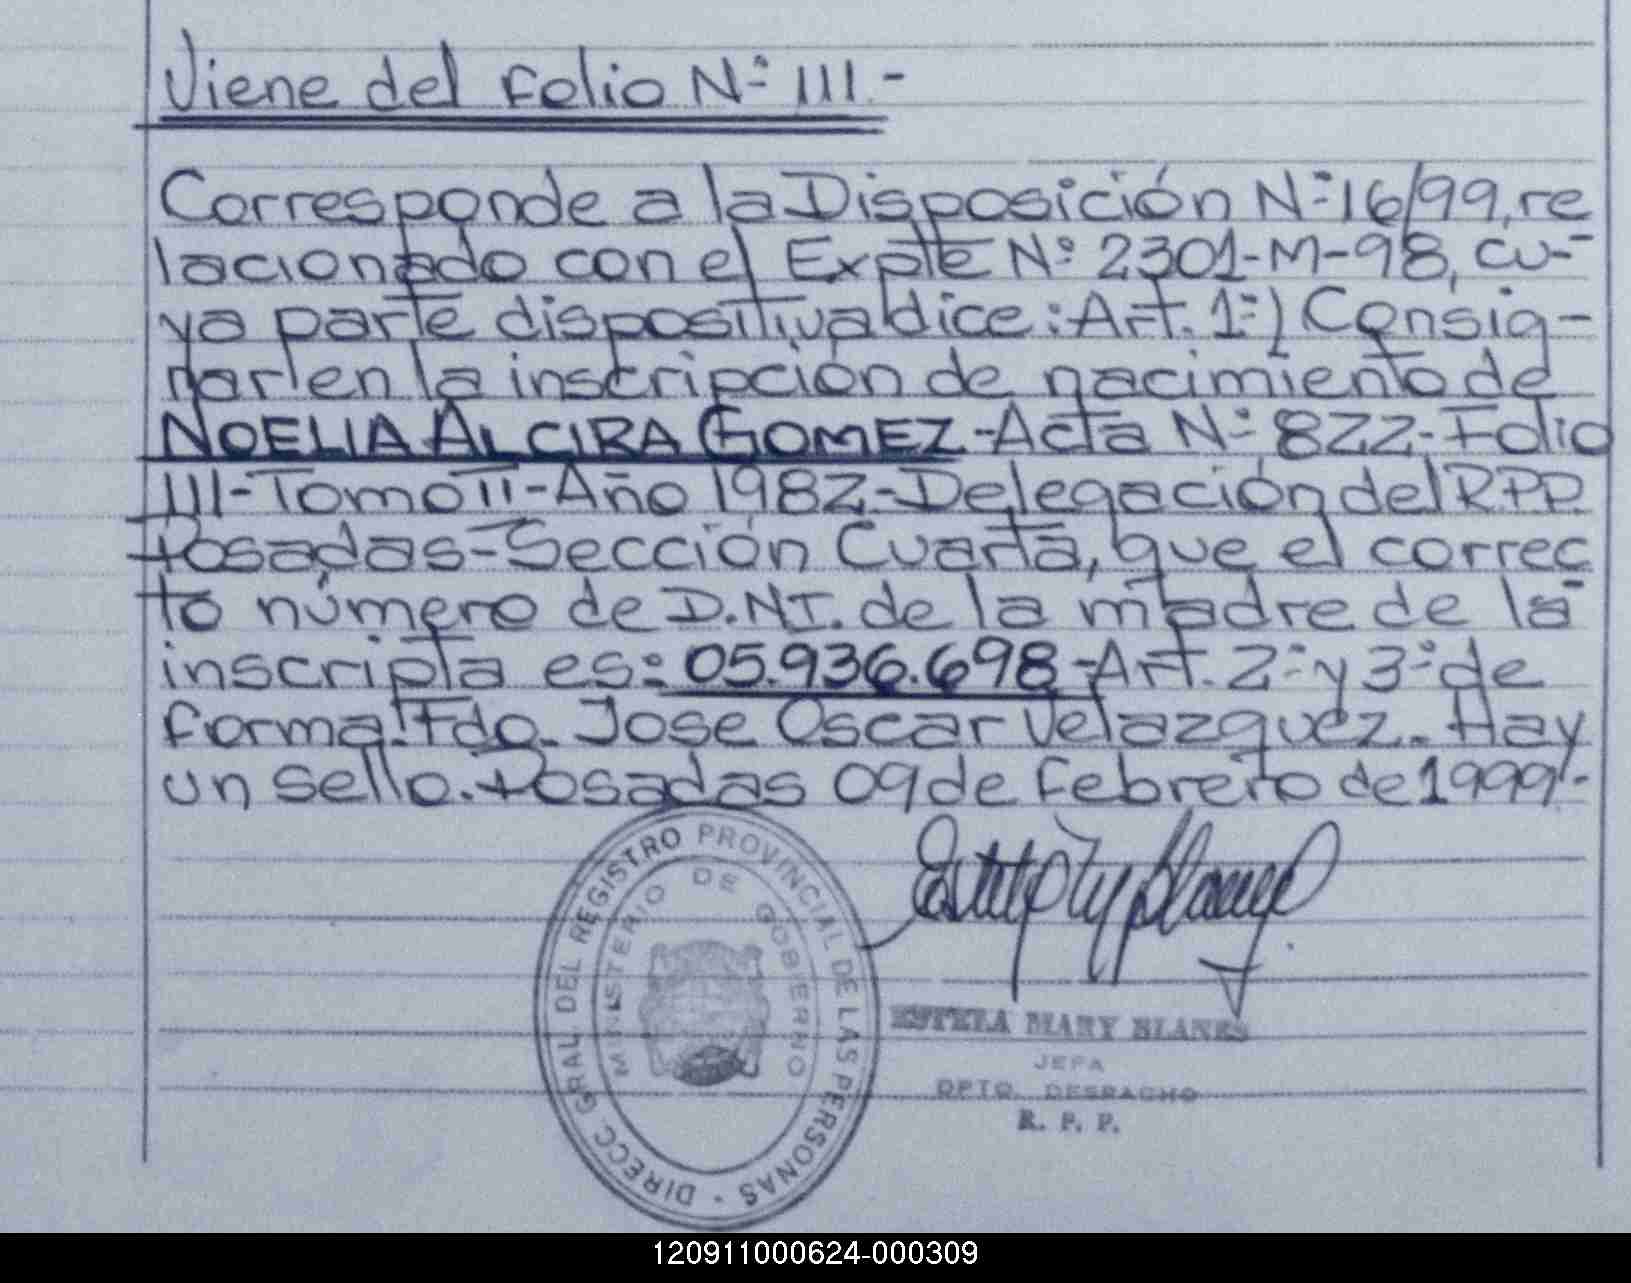 Viene del folio Nº 111.-
Corresponde a la Disposición Nº 16/99, re
lacionado con el Expte Nº 2301-M-98, cu-
ya parte dispositiva dice: Art. 1º) Consig-
nar en la inscripción de nacimiento de
NOELIA ALCIRA GOMEZ-Acta Nº 822-Folio
111-Tomo II-Año 1982-Delegación del R.P.P.
Posadas-Sección Cuarta, que el correc
to número de D.N.I. de la madre de la
inscripta es: 05.936.698-Art. 2º y 3º de
forma. Fdo. Jose Oscar Velazquez. Hay
un sello. Posadas 09 de febrero de 1999.-
DIRECC. GRAL DEL REGISTRO PROVINCIAL DE LAS PERSONAS
MINISTERIO DE GOBIERNO
ESTELA MARY BLANES
JEFA
DPTO. DESPACHO
R. P. P.
120911000624-000309